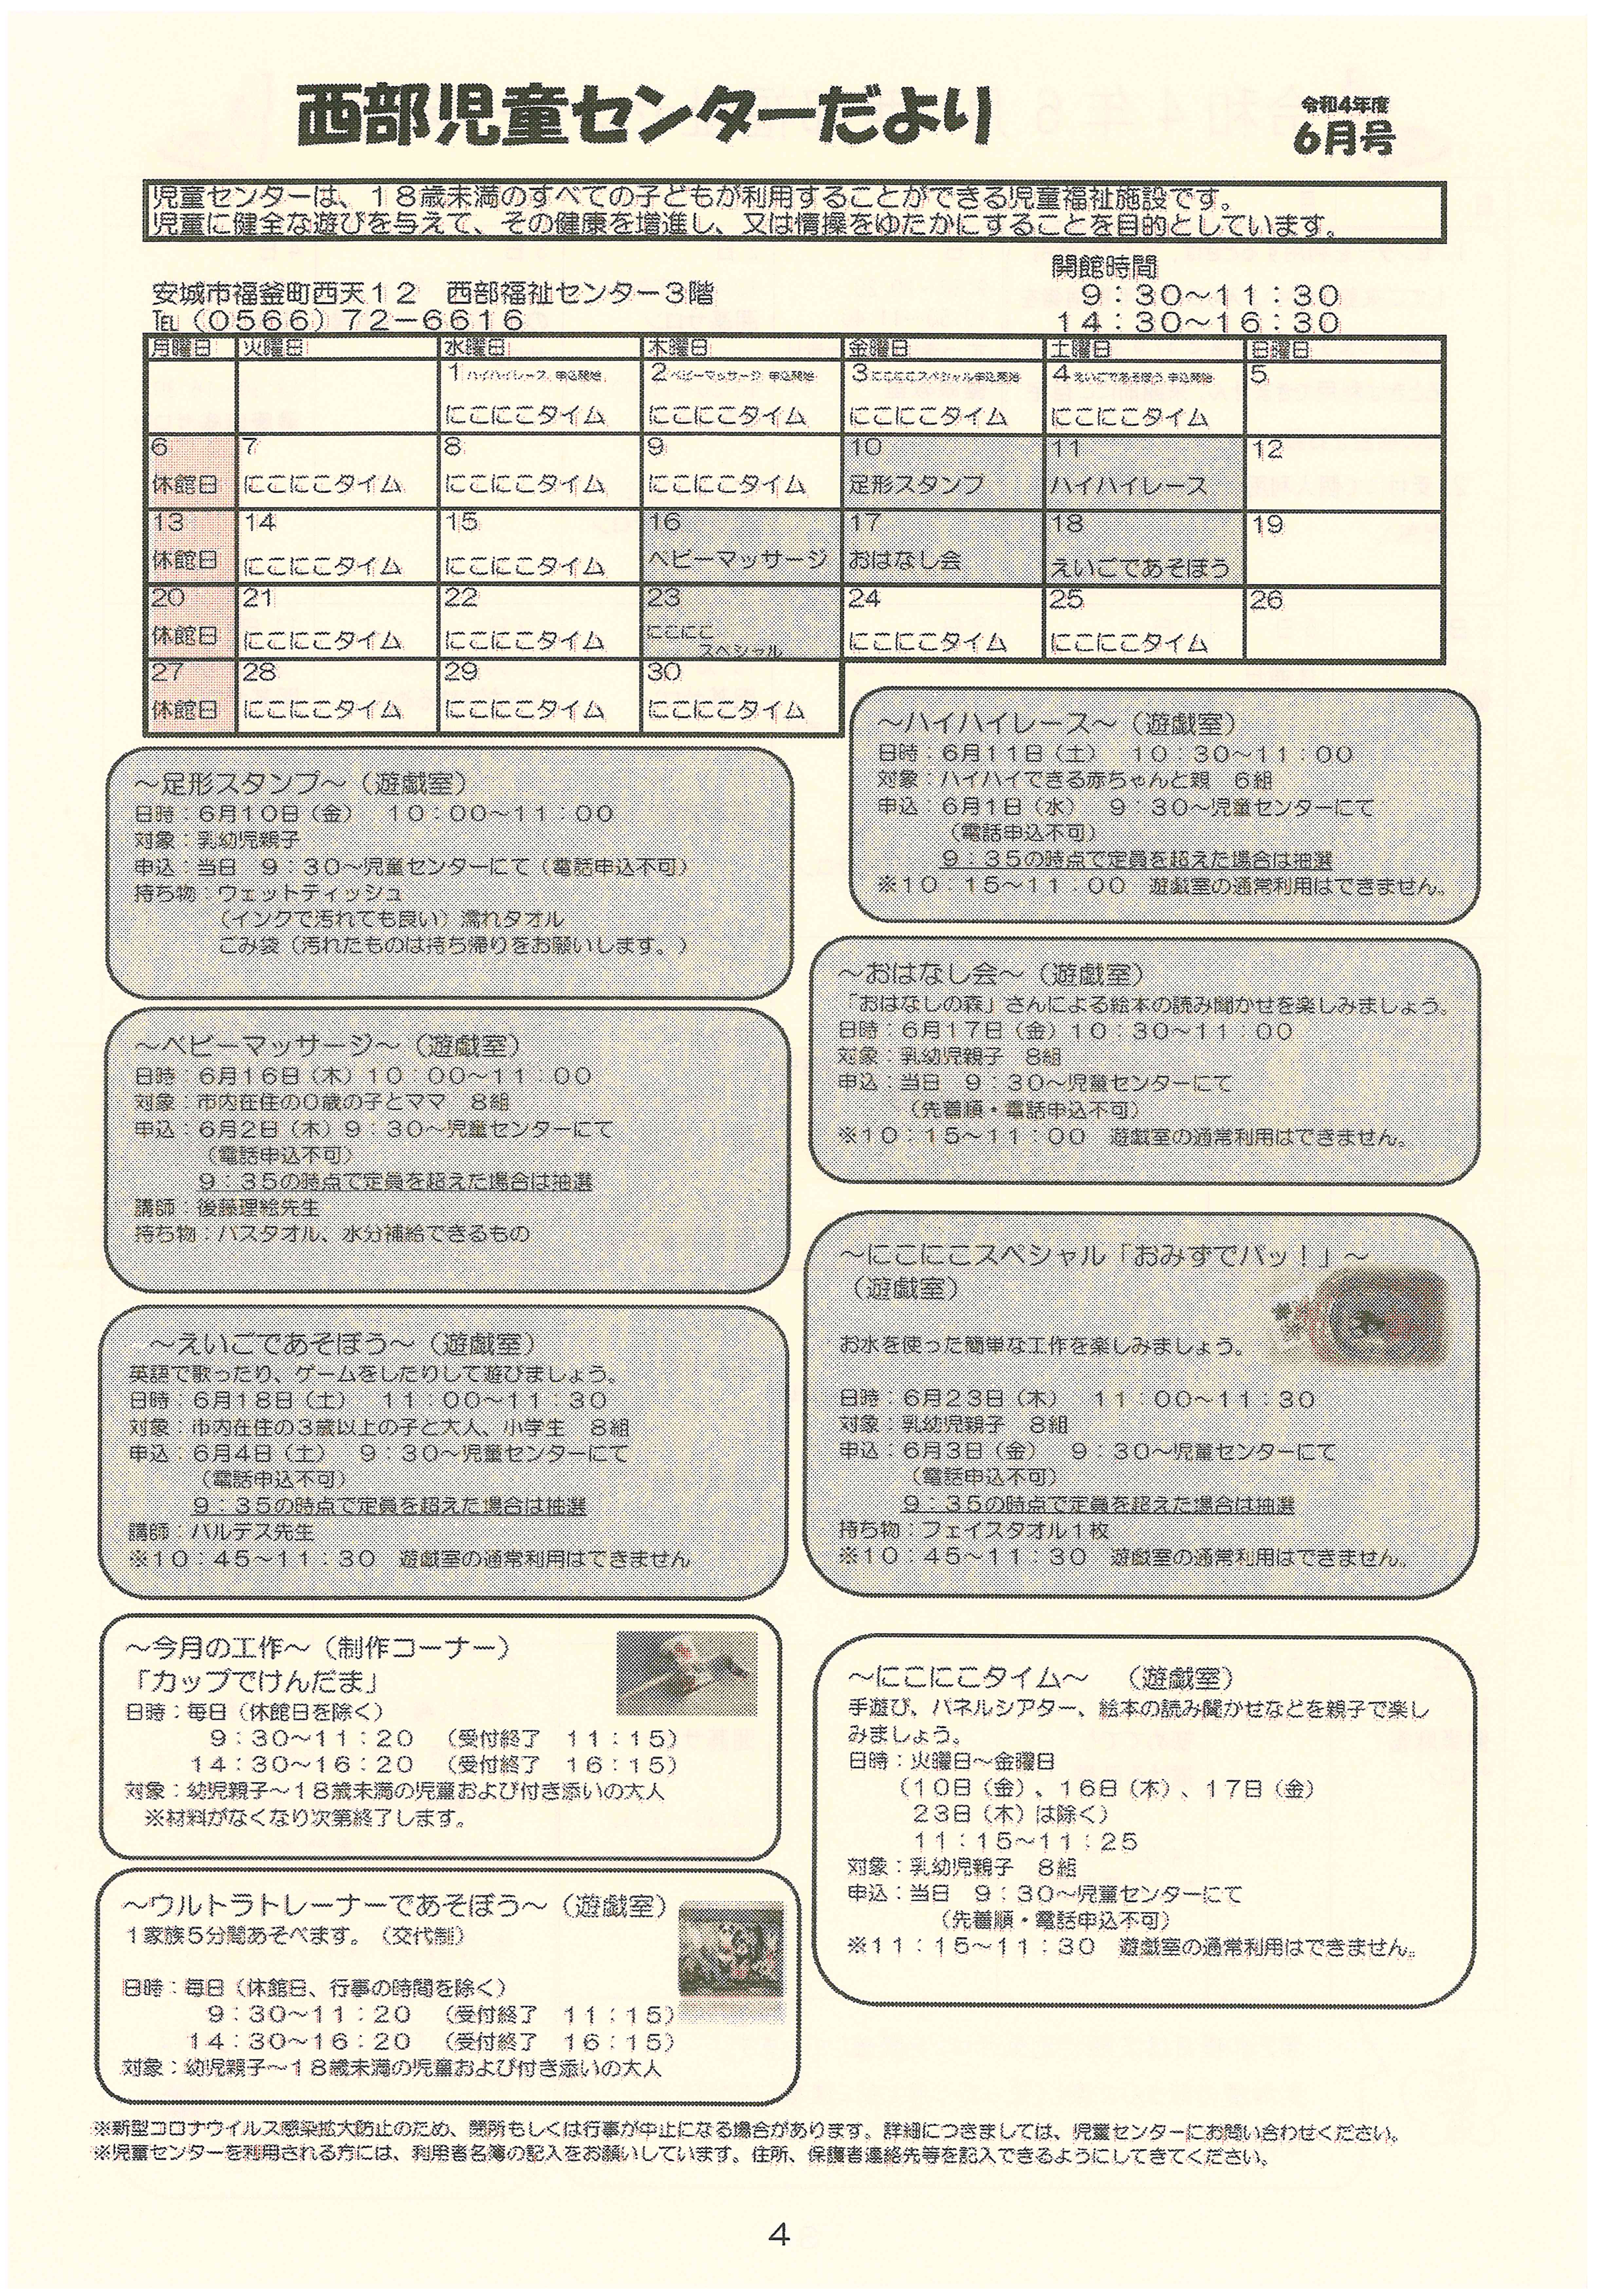 西部児童センターだより
令和4年度
6月号
児童センターは、１８歳未満のすべての子どもが利用することができる児童福祉施設です。
児童に健全な遊びを与えて、その健康を増進し、又は情操をゆたかにすることを目的としています。
開館時間
安城市福釜町西天１２　西部福祉センター３階
９：３０～１１：３０
℡（０５６６）７２－６６１６
１４：３０～１６：３０
月曜日 火曜日 水曜日 木曜日 金曜日 土曜日 日曜日
1 ハイハイレース 申込開始 2 ベビーマッサージ 申込開始 3 にこにこスペシャル申込開始 4 えいごであそぼう 申込開始 5
にこにこタイム にこにこタイム にこにこタイム にこにこタイム
6 7 8 9 10 11 12
休館日 にこにこタイム にこにこタイム にこにこタイム 足形スタンプ ハイハイレース
13 14 15 16 17 18 19
休館日 にこにこタイム にこにこタイム ベビーマッサージ おはなし会 えいごであそぼう
20 21 22 23 24 25 26
休館日 にこにこタイム にこにこタイム にこにこ スペシャル にこにこタイム にこにこタイム
27 28 29 30
休館日 にこにこタイム にこにこタイム にこにこタイム
～ハイハイレース～（遊戯室）
日時：６月１１日（土）　１０：３０～１１：００
対象：ハイハイできる赤ちゃんと親　６組
申込：６月１日（水）　９：３０～児童センターにて
（電話申込不可）
９：３５の時点で定員を超えた場合は抽選
※１０：１５～１１：００　遊戯室の通常利用はできません。
～足形スタンプ～（遊戯室）
日時：６月１０日（金）　１０：００～１１：００
対象：乳幼児親子
申込：当日　９：３０～児童センターにて（電話申込不可）
持ち物：ウェットティッシュ
（インクで汚れても良い）濡れタオル
ごみ袋（汚れたものは持ち帰りをお願いします。）
～おはなし会～（遊戯室）
「おはなしの森」さんによる絵本の読み聞かせを楽しみましょう。
日時：６月１７日（金）１０：３０～１１：００
対象：乳幼児親子　８組
申込：当日　９：３０～児童センターにて
（先着順・電話申込不可）
※１０：１５～１１：００　遊戯室の通常利用はできません。
～ベビーマッサージ～（遊戯室）
日時：６月１６日（木）１０：００～１１：００
対象：市内在住の０歳の子とママ　８組
申込：６月２日（木）９：３０～児童センターにて
（電話申込不可）
９：３５の時点で定員を超えた場合は抽選
講師：後藤理絵先生
持ち物：バスタオル、水分補給できるもの
～にこにこスペシャル「おみずでパッ！」～
（遊戯室）
お水を使った簡単な工作を楽しみましょう。
日時：６月２３日（木）　１１：００～１１：３０
対象：乳幼児親子　８組
申込：６月３日（金）　９：３０～児童センターにて
（電話申込不可）
９：３５の時点で定員を超えた場合は抽選
持ち物：フェイスタオル１枚
※１０：４５～１１：３０　遊戯室の通常利用はできません。
～えいごであそぼう～（遊戯室）
英語で歌ったり、ゲームをしたりして遊びましょう。
日時：６月１８日（土）　１１：００～１１：３０
対象：市内在住の３歳以上の子と大人、小学生　８組
申込：６月４日（土）　９：３０～児童センターにて
（電話申込不可）
９：３５の時点で定員を超えた場合は抽選
講師：バルデス先生
※１０：４５～１１：３０　遊戯室の通常利用はできません
～今月の工作～（制作コーナー）
「カップでけんだま」
日時：毎日（休館日を除く）
９：３０～１１：２０　（受付終了　１１：１５）
１４：３０～１６：２０　（受付終了　１６：１５）
対象：幼児親子～１８歳未満の児童および付き添いの大人
※材料がなくなり次第終了します。
～にこにこタイム～　（遊戯室）
手遊び、パネルシアター、絵本の読み聞かせなどを親子で楽し
みましょう。
日時：火曜日～金曜日
（１０日（金）、１６日（木）、１７日（金）
２３日（木）は除く）
１１：１５～１１：２５
対象：乳幼児親子　８組
申込：当日　９：３０～児童センターにて
（先着順・電話申込不可）
※１１：１５～１１：３０　遊戯室の通常利用はできません。
～ウルトラトレーナーであそぼう～（遊戯室）
１家族５分間あそべます。（交代制）
日時：毎日（休館日、行事の時間を除く）
９：３０～１１：２０　（受付終了　１１：１５）
１４：３０～１６：２０　（受付終了　１６：１５）
対象：幼児親子～１８歳未満の児童および付き添いの大人
※新型コロナウイルス感染拡大防止のため、閉所もしくは行事が中止になる場合があります。詳細につきましては、児童センターにお問い合わせください。
※児童センターを利用される方には、利用者名簿の記入をお願いしています。住所、保護者連絡先等を記入できるようにしてきてください。
4